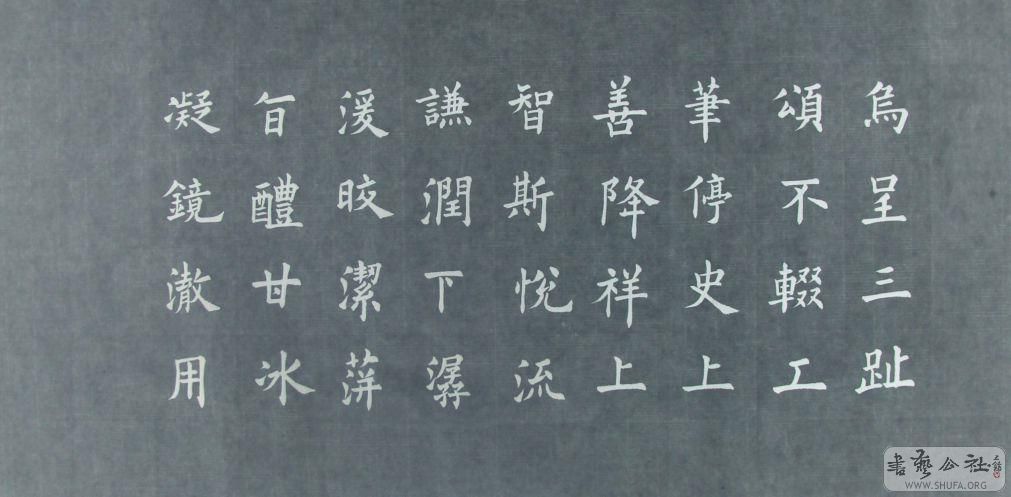 烏呈三趾
頌不輟工
筆停史上
善降祥上
智斯悅流
謙潤下潺
湲晈潔蓱
旨醴甘冰
凝鏡澈用
書藝公社
WWW.SHUFA.ORG